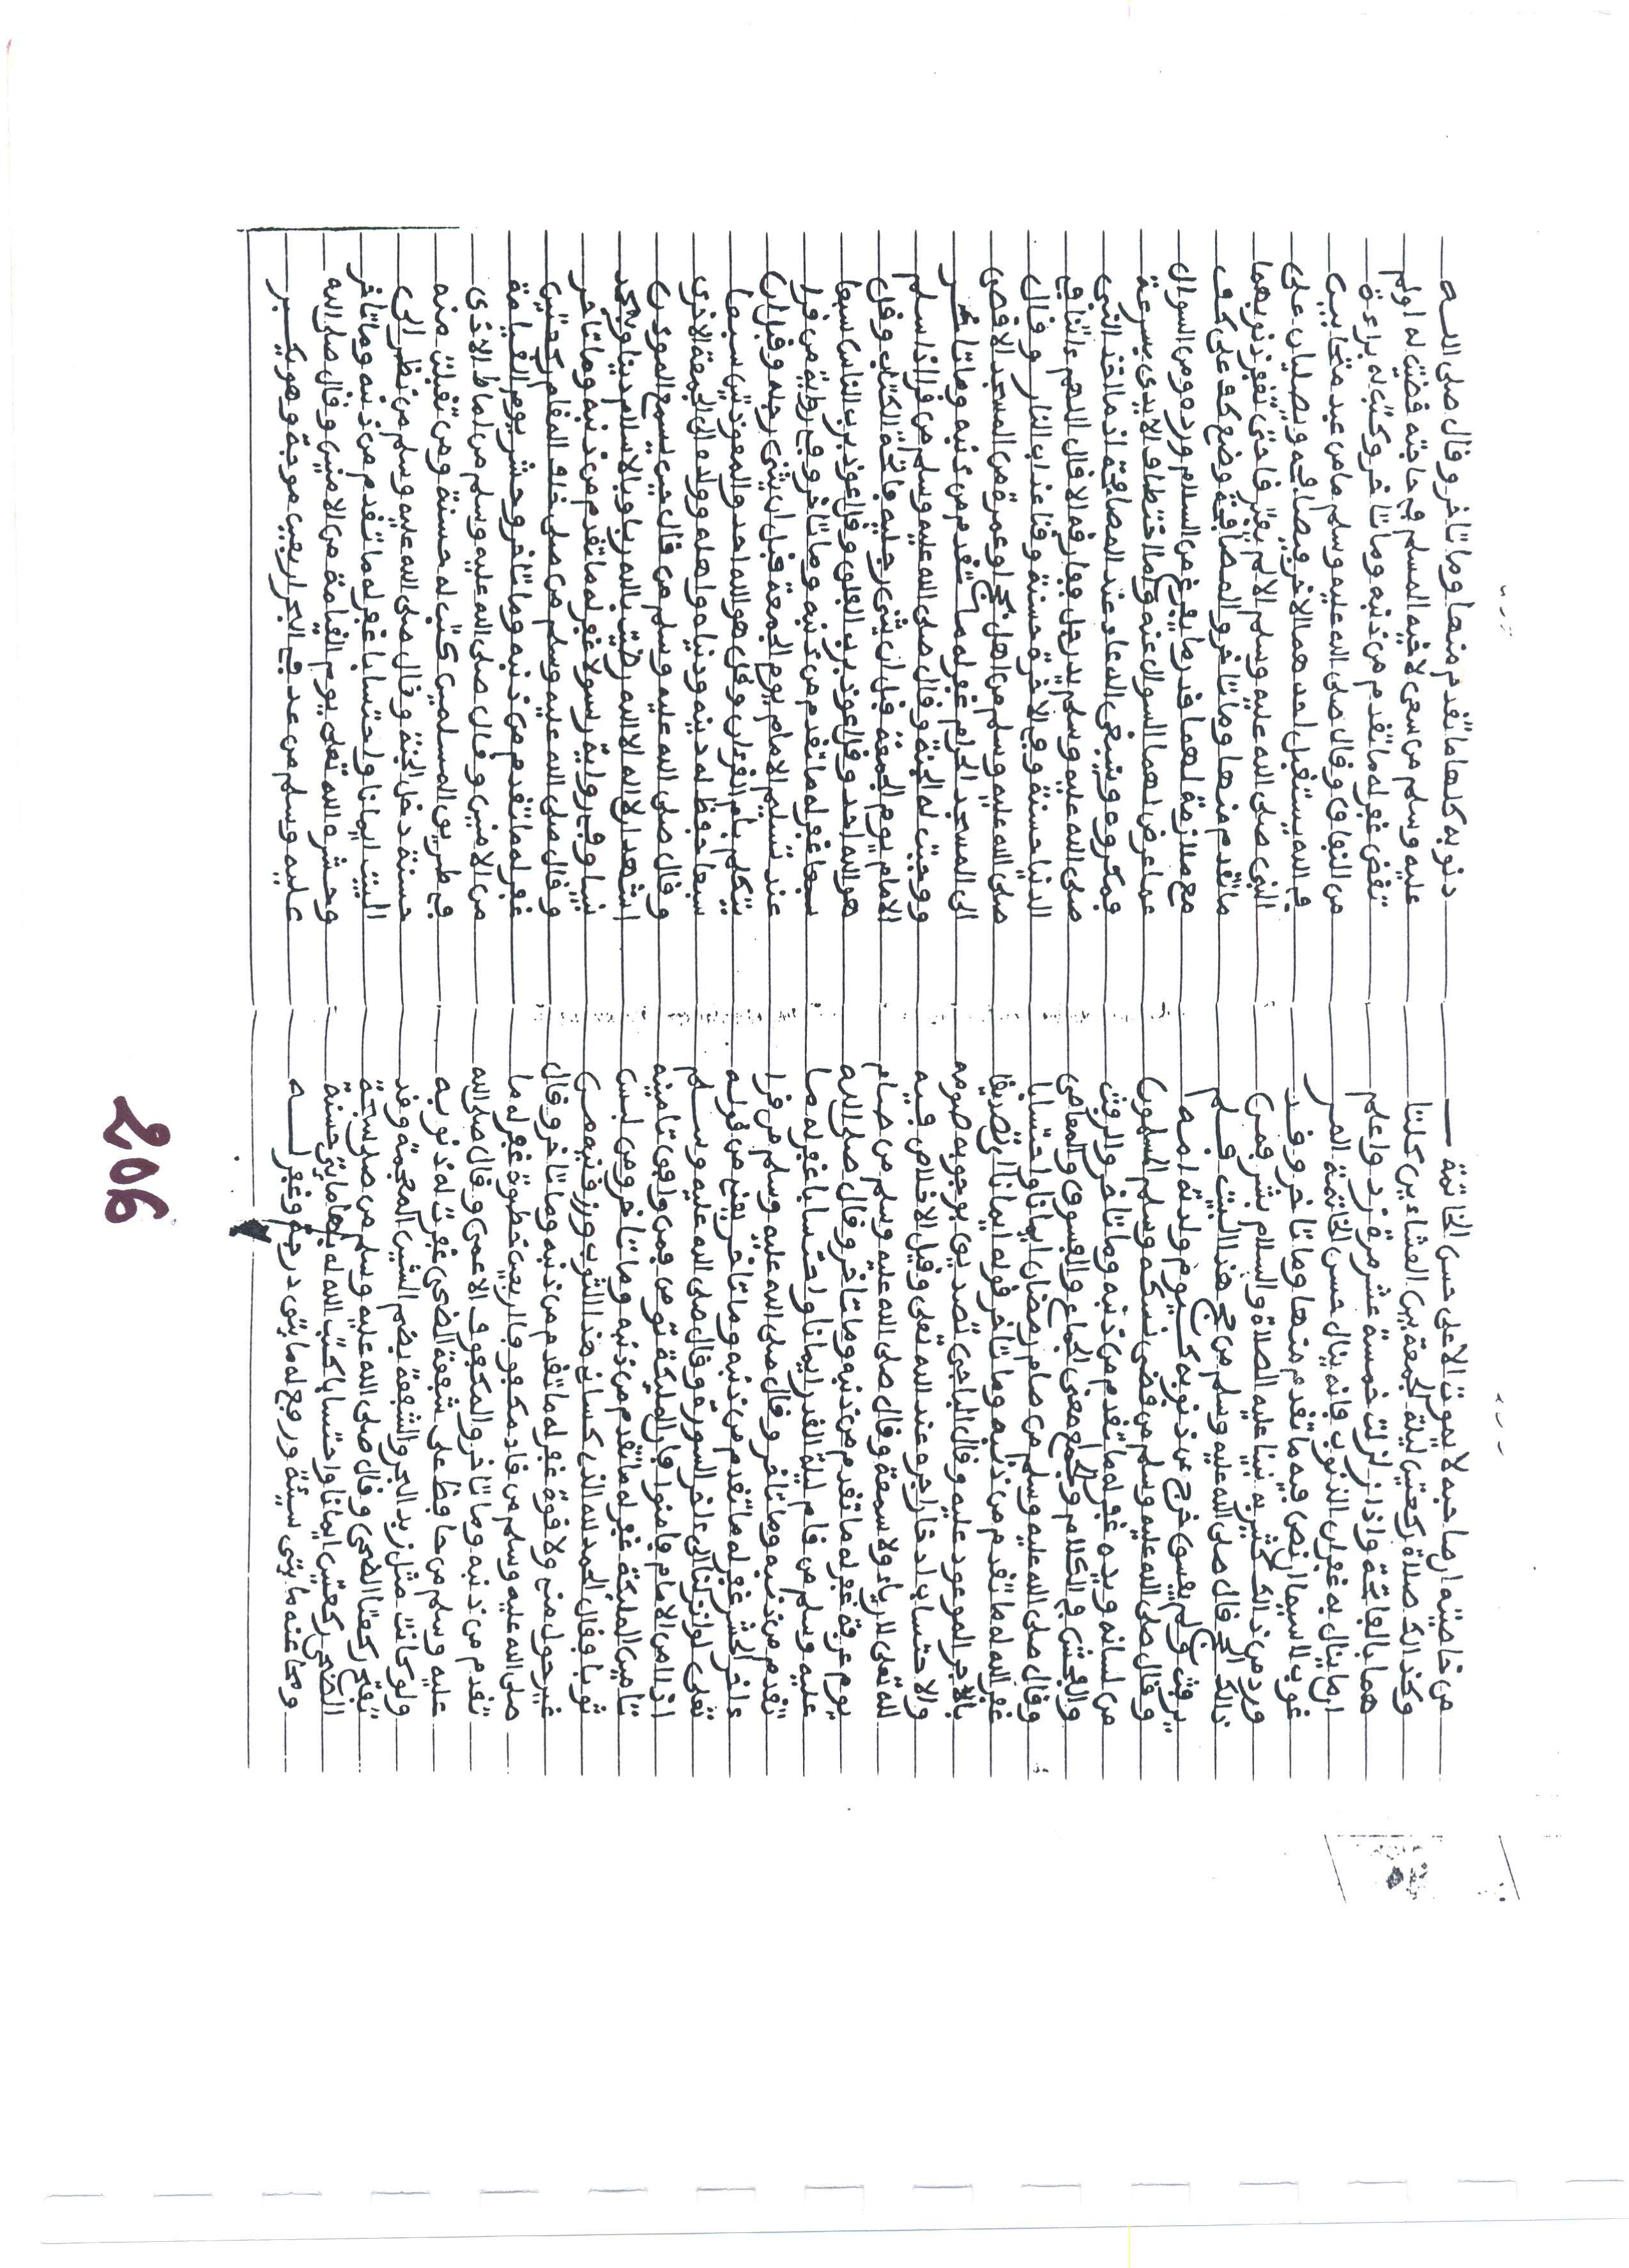 من خاصيته ان صاحبه لا يموت الا على حسن الخاتمة
وكذالك صلاة ركعتين ليلة الجمعة بين العشاءين كلتا
هما بالفاتحة واذا زلزلت خمسة عشر مرة فرد واعلم
ان ما ينال به غفران الذنوب فانه ينال حسن الخاتمة المر
غوب لا سيما ان نص فيه ما تقدم منها وما تاخر وقد
ورد من ذالك كثير به نبينا عليه الصلاة والسلام بشر فمن
ذالك الحج قال صلى الله عليه وسلم من حج هذا البيت فلم
يرفث ولم يفسق خرج من ذنوبه كيوم ولدته امه
وقال صلى الله عليه وسلم من قضى نسكه وسلم المسلمون
من لسانه ويده غفر له ما تقدم من ذنبه وما تاخر والرفث
والفحش في الكلام والجماع معنى الجماع والفسوق والمعاصى
وقال صلى الله عليه وسلم من صام رمضان ايمانا واحتسابا
غفر الله له ما تقدم من ذنبه وما تاخر قوله ايمانا اي تصديقا
بالاجر الموعود عليه وقال الباجي تصديق بوجوبه صومه
والاحتساب ادخار اجره عند الله تعلى وقيل الاخلاص فيه
لله تعلى لا رياء ولا سمعة وقال صلى الله عليه وسلم من صام
يوم عرفة غفر له ما تقدم من ذنبه وما تاخر وقال صلى الله
عليه وسلم من قام ليلة القدر ايمانا واحتسابا غفر له ما
تقدم من ذنبه وما تاخر وقال صلى الله عليه وسلم من قرا
ءاخر الحشر غفر له ما تقدم من ذنبه وما تاخر يعني من قوله
تعلى لو انزلنا الى ءاخر السورة وقال صلى الله عليه وسلم
اذا امن الامام فامنوا فان الملئكة تومن فمن وافق تامينه
تامين الملئكة غفر له ما تقدم من ذنبه وما تاخر ومن لبس
ثوبا فقال الحمد لله الذي كساني هذا الثوب ورزقنيه من
غير حول مني ولا قوة غفر له ما تقدم من ذنبه وما تاخر وقال
صلى الله عليه وسلم من قاد مكفوفا اربعين خطوة غفر له ما
تقدم من ذنبه وما تاخر والمكفوف الاعمى وقال صلى الله
عليه وسلم من حافظ على شفعة الضحى غفرت له ذنوبه
ولو كانت مثل زبد البحر والشفعة بضم الشين المعجمة وقد
تفتح ركعتا الضحى وقال صلى الله عليه وسلم من صلى سبحة
الضحى ركعتين ايمانا واحتسابا كتب الله له بها مايتي حسنة
ومحا عنه مايتي سيئة ورفع له مايتي درجة وغفر له
ذنوبه كلها ما تقدم منها وما تاخر وقال صلى الله
عليه وسلم من سعى لاخيه المسلم في حاجته قضيت له او لم
تقض غفر له ما تقدم من ذنبه وما تاخر وكتب له براءة
من النفاق وقال صلى الله عليه وسلم ما من عبد متحابين
في الله يستقبل احدهما الاخر فيصافحه ويصليان على
النبي صلى الله عليه وسلم الا لم يفترقا حتى تغفر ذنوبهما
ما تقدم منها وما تاخر والمصافحة وضع كف على كف
مع ملازمة لهما قدر ما يفرغ من السلام ورده ومن السوال
عما عرض لهما السوال عنه واما اختطاف الايدي بسرعة
فمكروه وينبغي الدعاء عند المصافحة اذ ما اخذ النبي
صلى الله عليه وسلم بيد رجل ففارقه الا قال اللهم ءاتنا في
الدنيا حسنة وفي الاخرة حسنة وقنا عذاب النار وقال
صلى الله عليه وسلم من اهل بحج او عمرة من المسجد الاقصى
الى المسجد الحرام غفر له ما تقدم من ذنبه وما تاخر
ووجبت له الجنة وقال صلى الله عليه وسلم من قرا اذا سلم
الامام يوم الجمعة قبل ان يثني رجليه فاتحة الكتاب وقل
هو الله احد وقل اعوذ برب الفلق وقل اعوذ برب الناس سبعا
سبعا غفر له ما تقدم من ذنبه وما تاخر وفي رواية من قرا
عند تسليم الامام يوم الجمعة قبل ان يثنى رجله وقبل ان
يتكلم بام القرءان وقل هو الله احد والمعوذتين سبعا
سبعا حفظ له دينه ودنياه واهله وولده الى الجمعة الاخرى
وقال صلى الله عليه وسلم من قال حين يسمع الموذن
اشهد ان لا اله الا الله رضيت بالله ربا وبالاسلام دينا وبمحمد
نبيا وفي رواية رسولا غفر له ما تقدم من ذنبه وما تاخر
وقال صلى الله عليه وسلم من صلى خلف المقام ركعتين
غفر له ما تقدم من ذنبه وما تاخر وحشر يوم القيامة
من الامنين وقال صلى الله عليه وسلم من اماط الاذى
في طريق المسلمين كتبت له حسنة ومن تقبلت منه
حسنة دخل الجنة وقال صلى الله عليه وسلم من نظر الى
البيت ايمانا واحتسابا غفر له ما تقدم من ذنبه وما تاخر
وحشره الله تعلى يوم القيامة من الامنين وقال صلى الله
عليه وسلم من عد في البحر اربعين موجة وهو يكبر
206